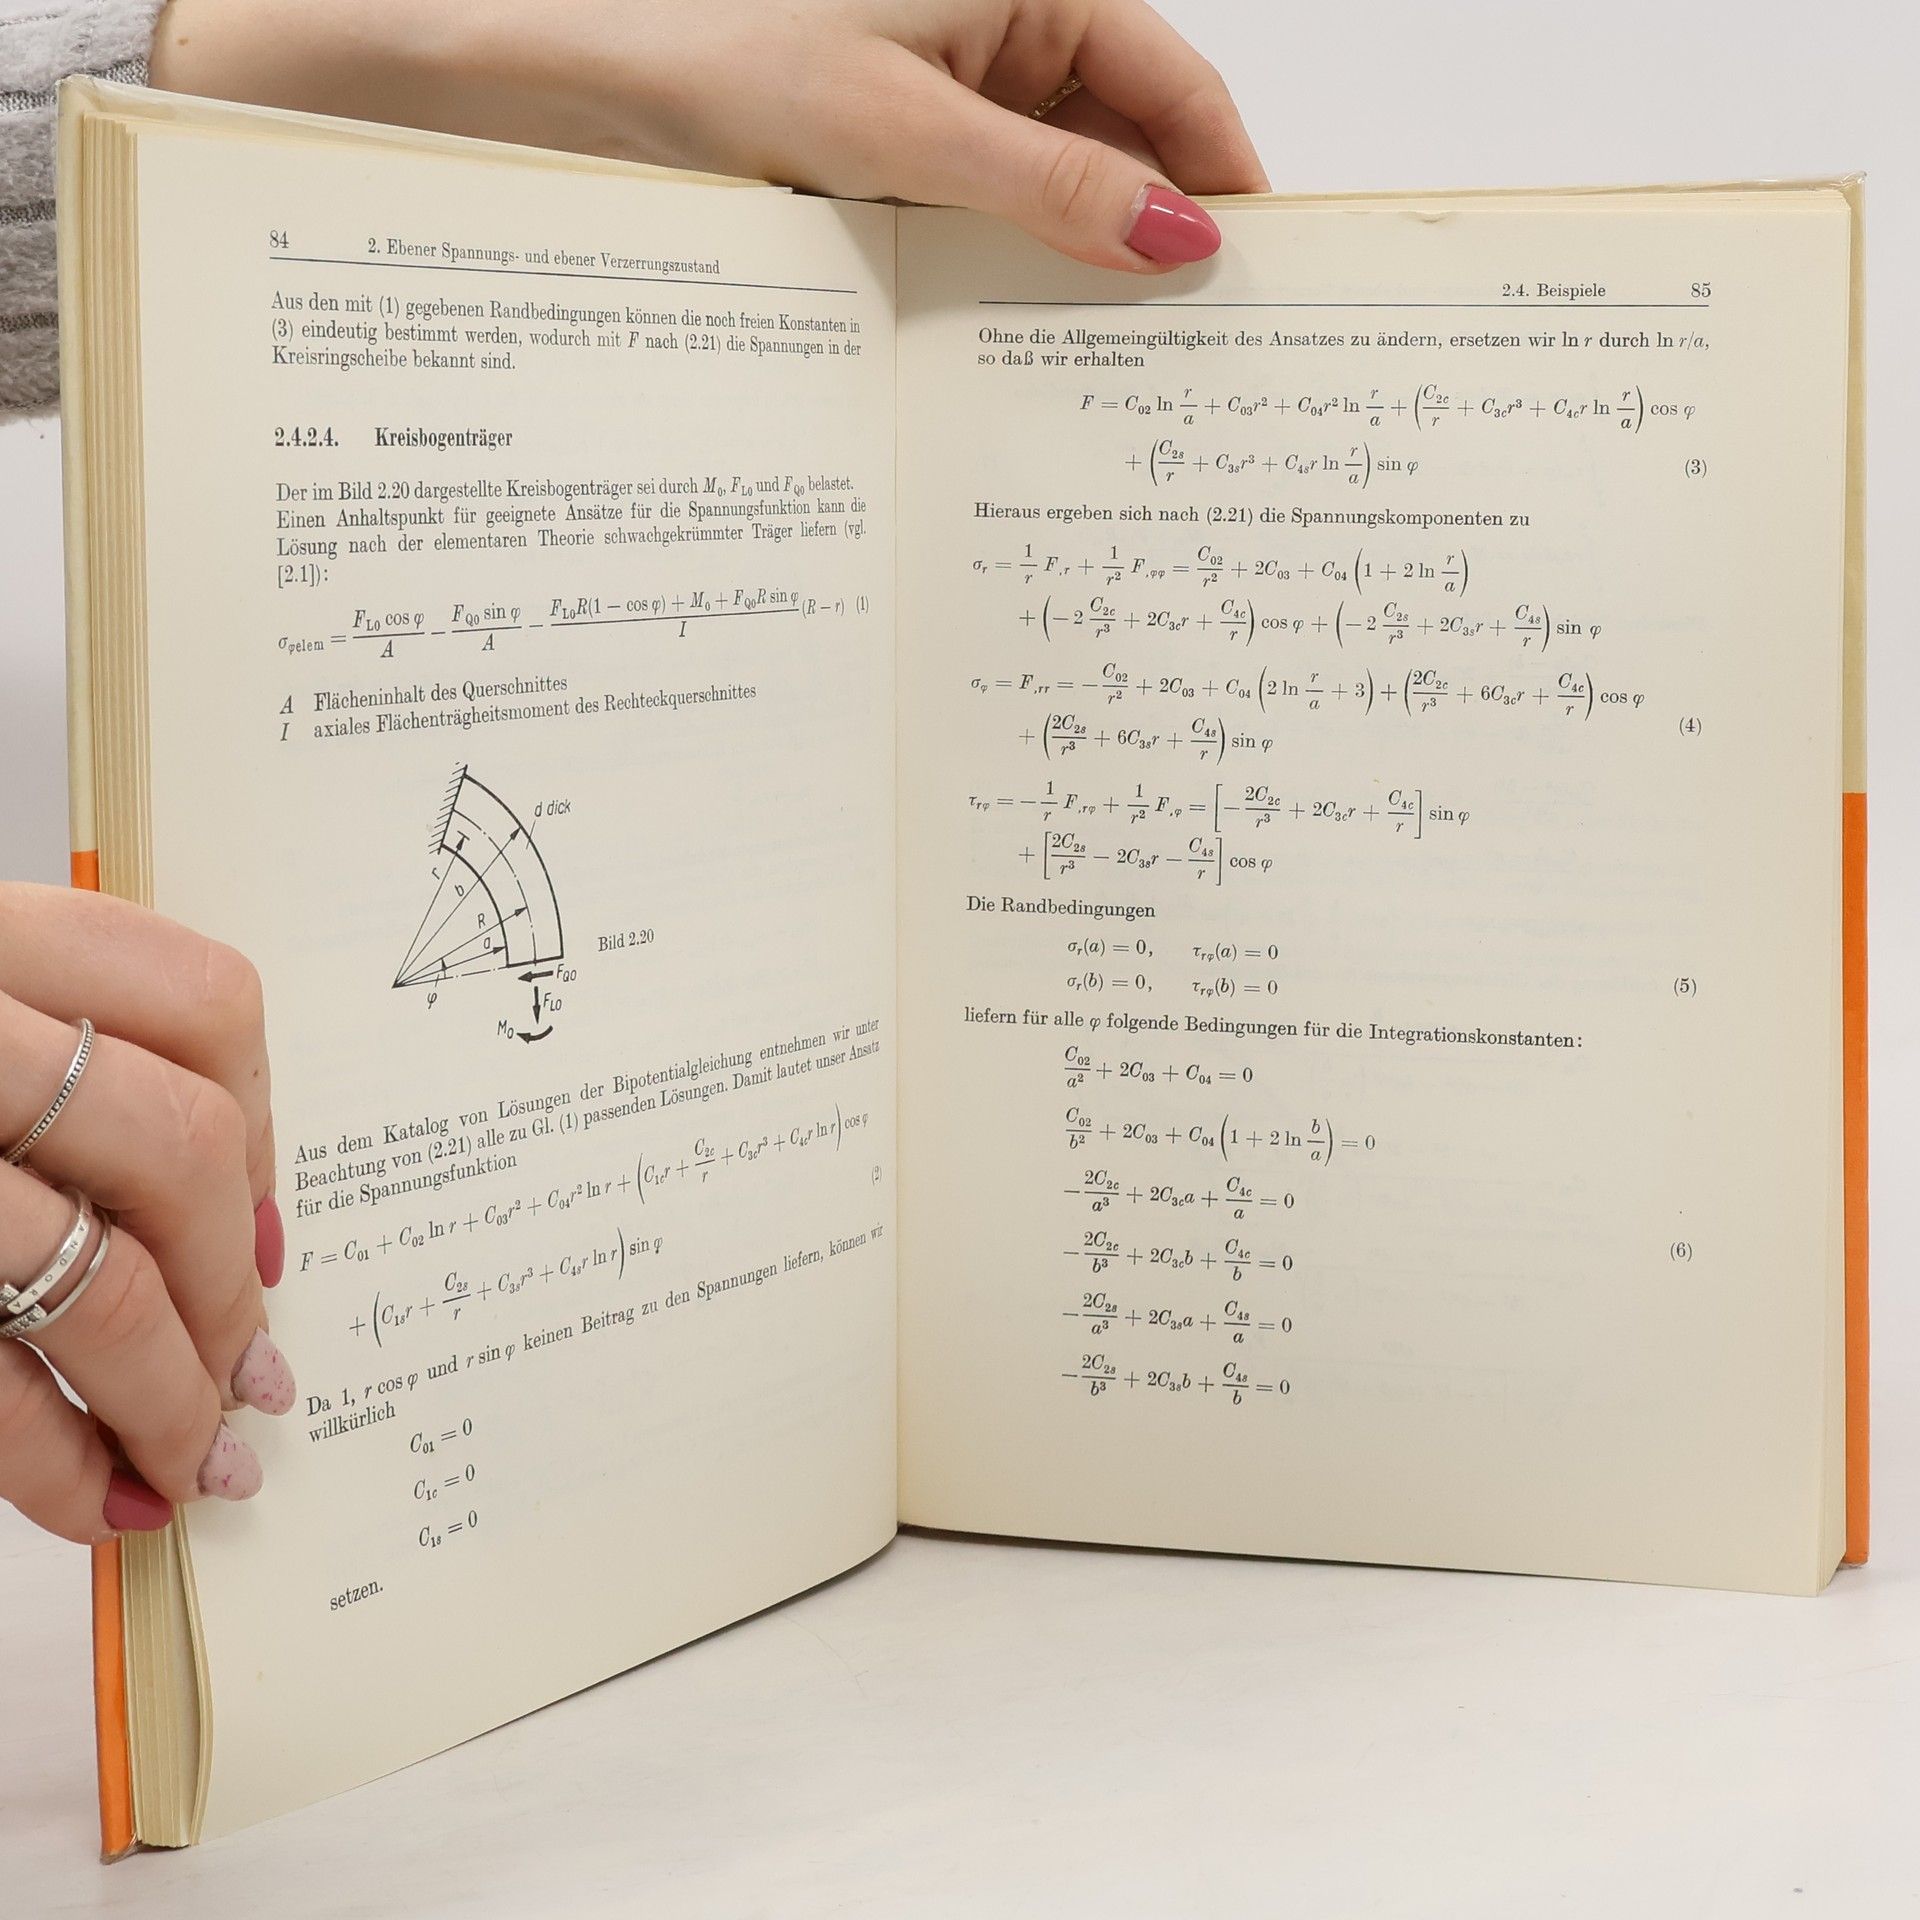 84 2. Ebener Spannungs- und ebener Verzerrungszustand
Aus den mit (1) gegebenen Randbedingungen können die noch freien Konstanten in
(3) eindeutig bestimmt werden, wodurch mit F nach (2.21) die Spannungen in der
Kreisringscheibe bekannt sind.
2.4.2.4. Kreisbogenträger
Der im Bild 2.20 dargestellte Kreisbogenträger sei durch M₀, F_L0 und F_Q0 belastet.
Einen Anhaltspunkt für geeignete Ansätze für die Spannungsfunktion kann die
Lösung nach der elementaren Theorie schwachgekrümmter Träger liefern (vgl.
[2.1]):
σ_φelem = F_L0 cos φ / A − F_Q0 sin φ / A − (F_L0 R(1 − cos φ) + M₀ + F_Q0 R sin φ) / I (R − r) (1)
A Flächeninhalt des Querschnittes
I axiales Flächenträgheitsmoment des Rechteckquerschnittes
d dick
r
b
R
a
φ
F_Q0
F_L0
M₀
Bild 2.20
Aus dem Katalog von Lösungen der Bipotentialgleichung entnehmen wir unter
Beachtung von (2.21) alle zu Gl. (1) passenden Lösungen. Damit lautet unser Ansatz
für die Spannungsfunktion
F = C₀₁ + C₀₂ ln r + C₀₃r² + C₀₄r² ln r + (C_1c r + C_2c/r + C_3c r³ + C_4c r ln r) cos φ
+ (C_1s r + C_2s/r + C_3s r³ + C_4s r ln r) sin φ (2)
Da 1, r cos φ und r sin φ keinen Beitrag zu den Spannungen liefern, können wir
willkürlich
C₀₁ = 0
C_1c = 0
C_1s = 0
setzen.
2.4. Beispiele 85
Ohne die Allgemeingültigkeit des Ansatzes zu ändern, ersetzen wir ln r durch ln r/a,
so daß wir erhalten
F = C₀₂ ln r/a + C₀₃r² + C₀₄r² ln r/a + (C_2c/r + C_3c r³ + C_4c r ln r/a) cos φ
+ (C_2s/r + C_3s r³ + C_4s r ln r/a) sin φ (3)
Hieraus ergeben sich nach (2.21) die Spannungskomponenten zu
σ_r = 1/r F,_r + 1/r² F,_φφ = C₀₂/r² + 2C₀₃ + C₀₄ (1 + 2 ln r/a)
+ (−2 C_2c/r³ + 2C_3c r + C_4c/r) cos φ + (−2 C_2s/r³ + 2C_3s r + C_4s/r) sin φ
σ_φ = F,_rr = −C₀₂/r² + 2C₀₃ + C₀₄ (2 ln r/a + 3) + (2C_2c/r³ + 6C_3c r + C_4c/r) cos φ
+ (2C_2s/r³ + 6C_3s r + C_4s/r) sin φ (4)
τ_rφ = −1/r F,_rφ + 1/r² F,_φ = [−2C_2c/r³ + 2C_3c r + C_4c/r] sin φ
+ [2C_2s/r³ − 2C_3s r − C_4s/r] cos φ
Die Randbedingungen
σ_r(a) = 0, τ_rφ(a) = 0
σ_r(b) = 0, τ_rφ(b) = 0 (5)
liefern für alle φ folgende Bedingungen für die Integrationskonstanten:
C₀₂/a² + 2C₀₃ + C₀₄ = 0
C₀₂/b² + 2C₀₃ + C₀₄ (1 + 2 ln b/a) = 0
−2C_2c/a³ + 2C_3c a + C_4c/a = 0
−2C_2c/b³ + 2C_3c b + C_4c/b = 0 (6)
−2C_2s/a³ + 2C_3s a + C_4s/a = 0
−2C_2s/b³ + 2C_3s b + C_4s/b = 0